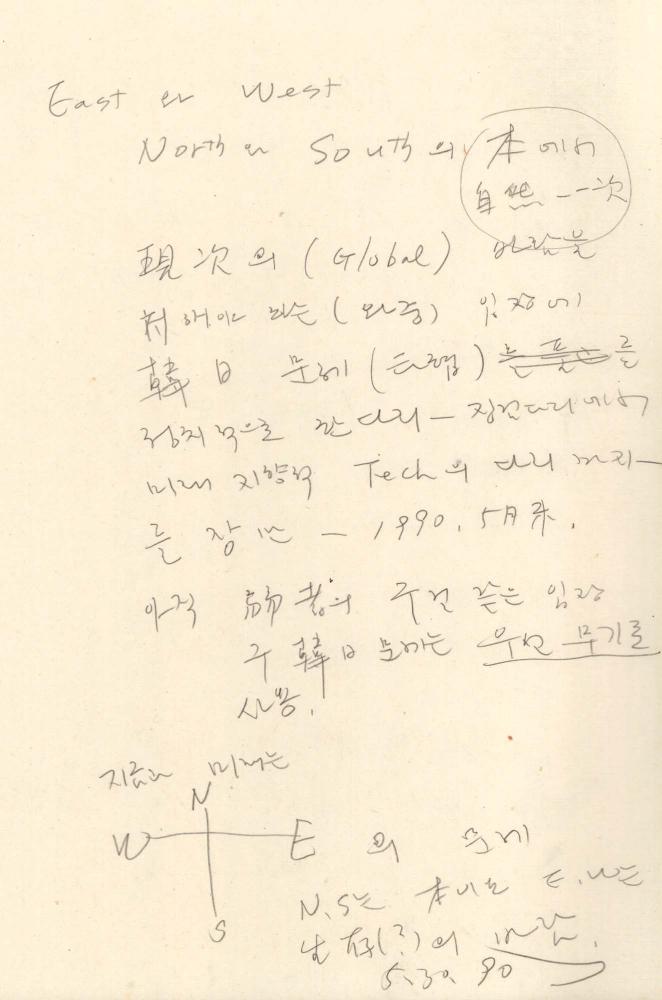 East 와 West
North 와 South의 本에서
自然 - 一次
現次의 (Global) 바람을
対해야 하는 (와중) 입장에
韓日 문제 (트럼)
정치적으로 본 다리 – 징검다리에서
미래 지향적 Tech의 다리 까지 –
를 장만 – 1990. 5月末.
아직 弱者의 구걸 같은 입장
구 韓日 문제는 우선 무기를
사용.
지금과 미래는
N
W E 의 문제
S
N, S는 本이요 E, W는
生存(?)의 바람.
5.30. 90